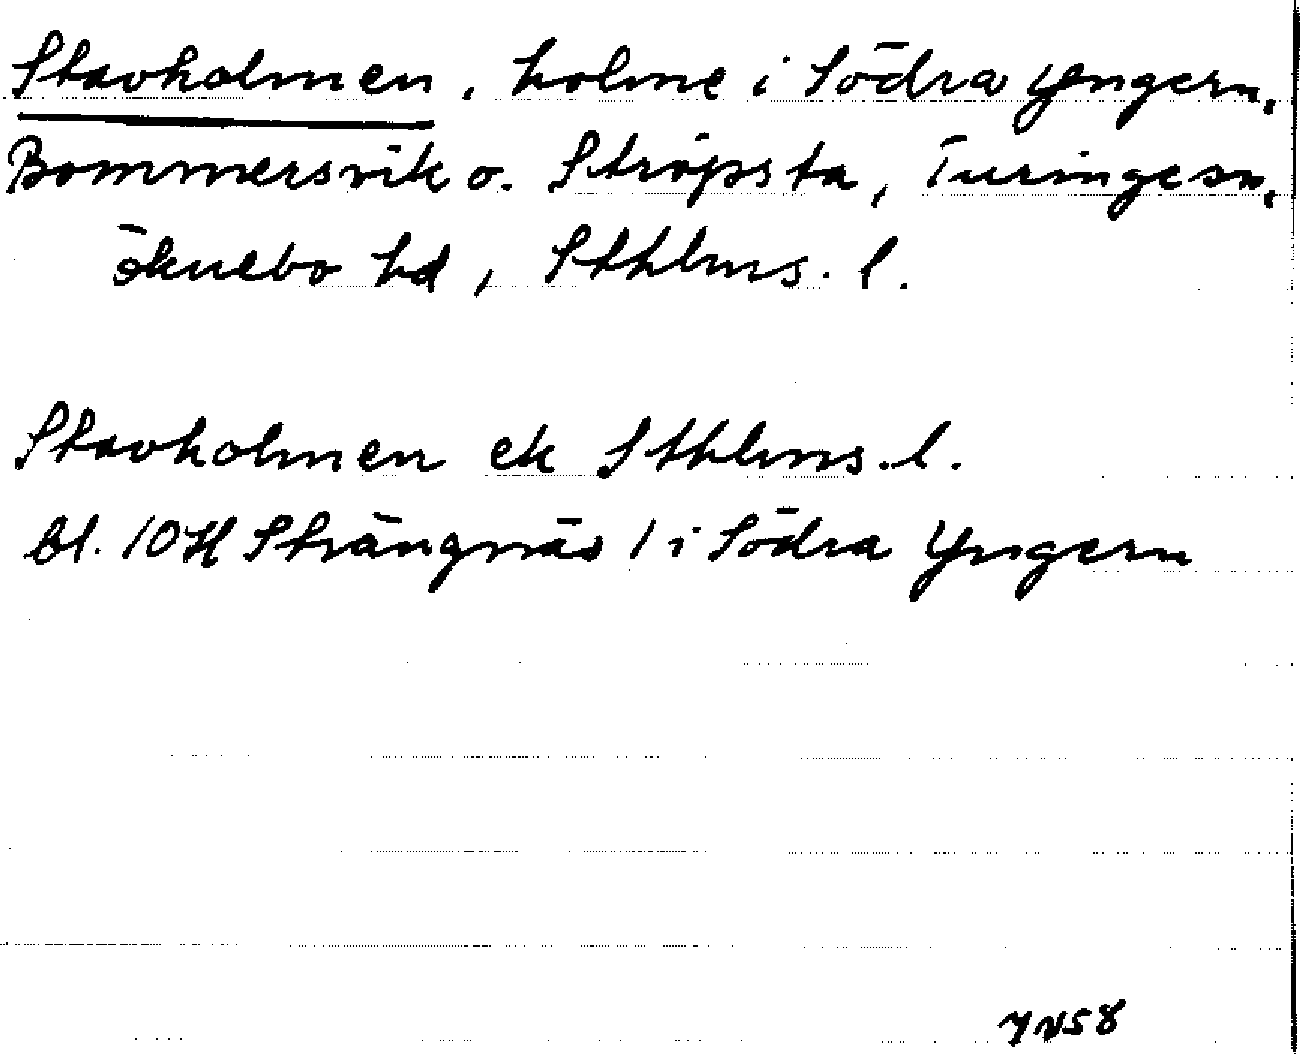 Stavholmen, holme i Södra Yngern,
Bommersvik o. Ströpsta, Turinge sn,
Öknebo hd, Sthlms. l.
Stavholmen ek Sthlms. l.
bl. 10H Strängnäs / i Södra Yngern